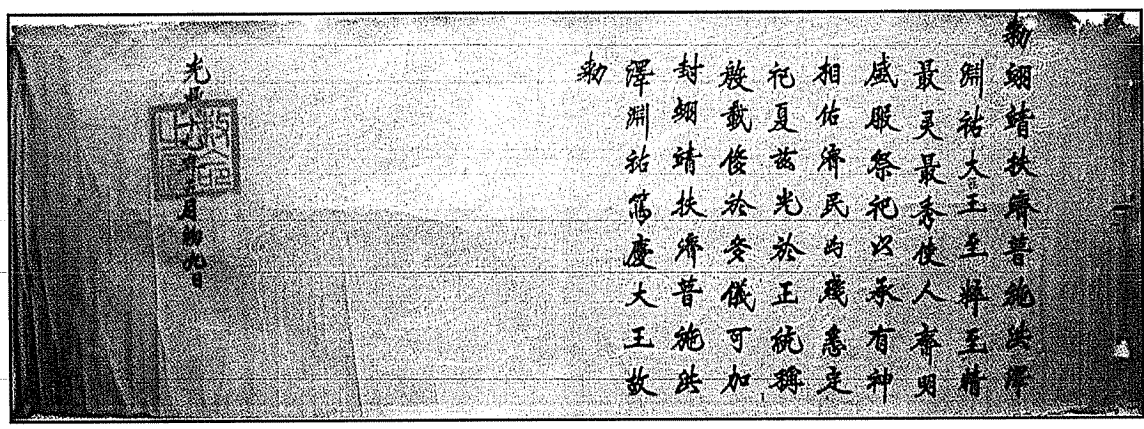 勅翊靖扶濟普施洪澤
淵祐大王至粹至精
最灵最秀使人齊明
盛服祭祀以承有神
相佑濟民殘悉定
祀夏兹光於正統稱
殷載俊於多儀可加
封翊靖扶濟普施洪
澤淵祐篤慶大王故
勅
光興十七年月初九日